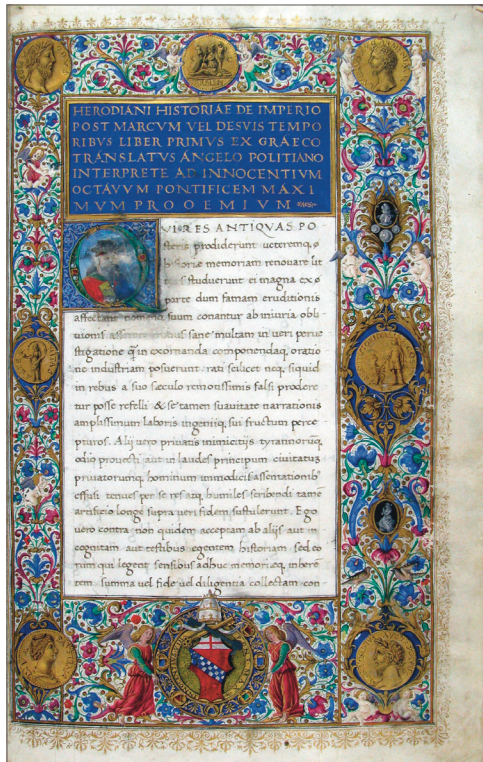 HERODIANI HISTORIAE DE IMPERIO
POST MARCVM VEL DE SVIS TEMPO
RIBVS LIBER PRIMUS EX GRAECO
TRANSLATUS ANGELO POLITIANO
INTERPRETE AD INNOCENTIUM
OCTAVUM PONTIFICEM MAXI
MVM PROOEMIVM
QVI RES ANTIQVAS PO
steris prodiderunt ueteremq
historiae memoriam renouare lit
teris studuerunt ei magna ex
parte dum famam eruditionis
affectant suum conantur ab iniuria obli
uionis sane multam in ueri perue
stigatione q̃ in exornanda componendaq oratio
ne industriam posuerunt rati scilicet neq siquid
in rebus a suo saeculo remotissimis falsi prodere
tur posse refelli & se tamen suauitate narrationis
amplissimum laboris ingeniiq sui fructum perce
pturos. Alij uero priuatis inimicitijs tyrannorũq
odio prouecti aut in laudes principum ciuitatũ
priuatorumq hominum immodicis assentationib
essusi tenues per se res atq humiles scribendi tamẽ
artificio longe supra ueri fidem sustulerunt. Ego
uero contra non quidem acceptam ab alijs aut in
cognitam aut testibus egentem historiam sed eo
rum qui legent sensibus adhuc memoriaeq inhere
tem summa uel fide uel diligentia collectam con